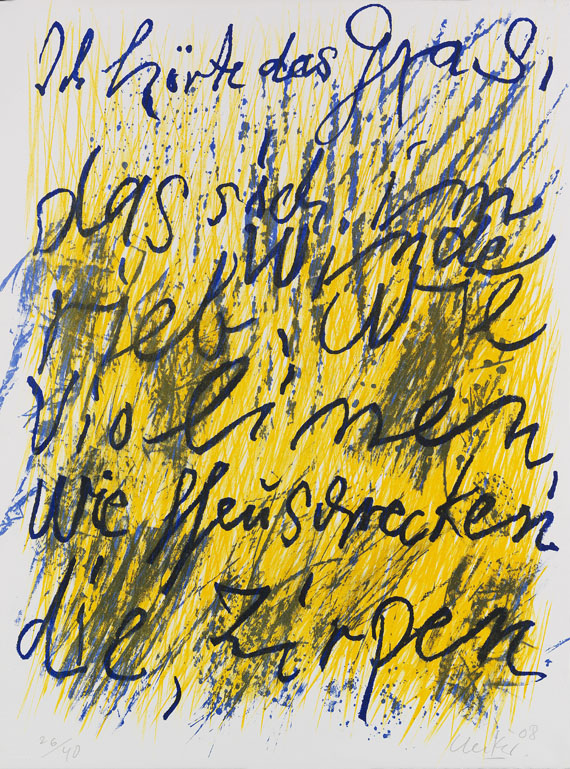 Ich hörte das Gras,
das sich im
Winde
rieb, wie
Violinen,
wie Heuschrecken
die, zirpen.
26/40 Uecker 08